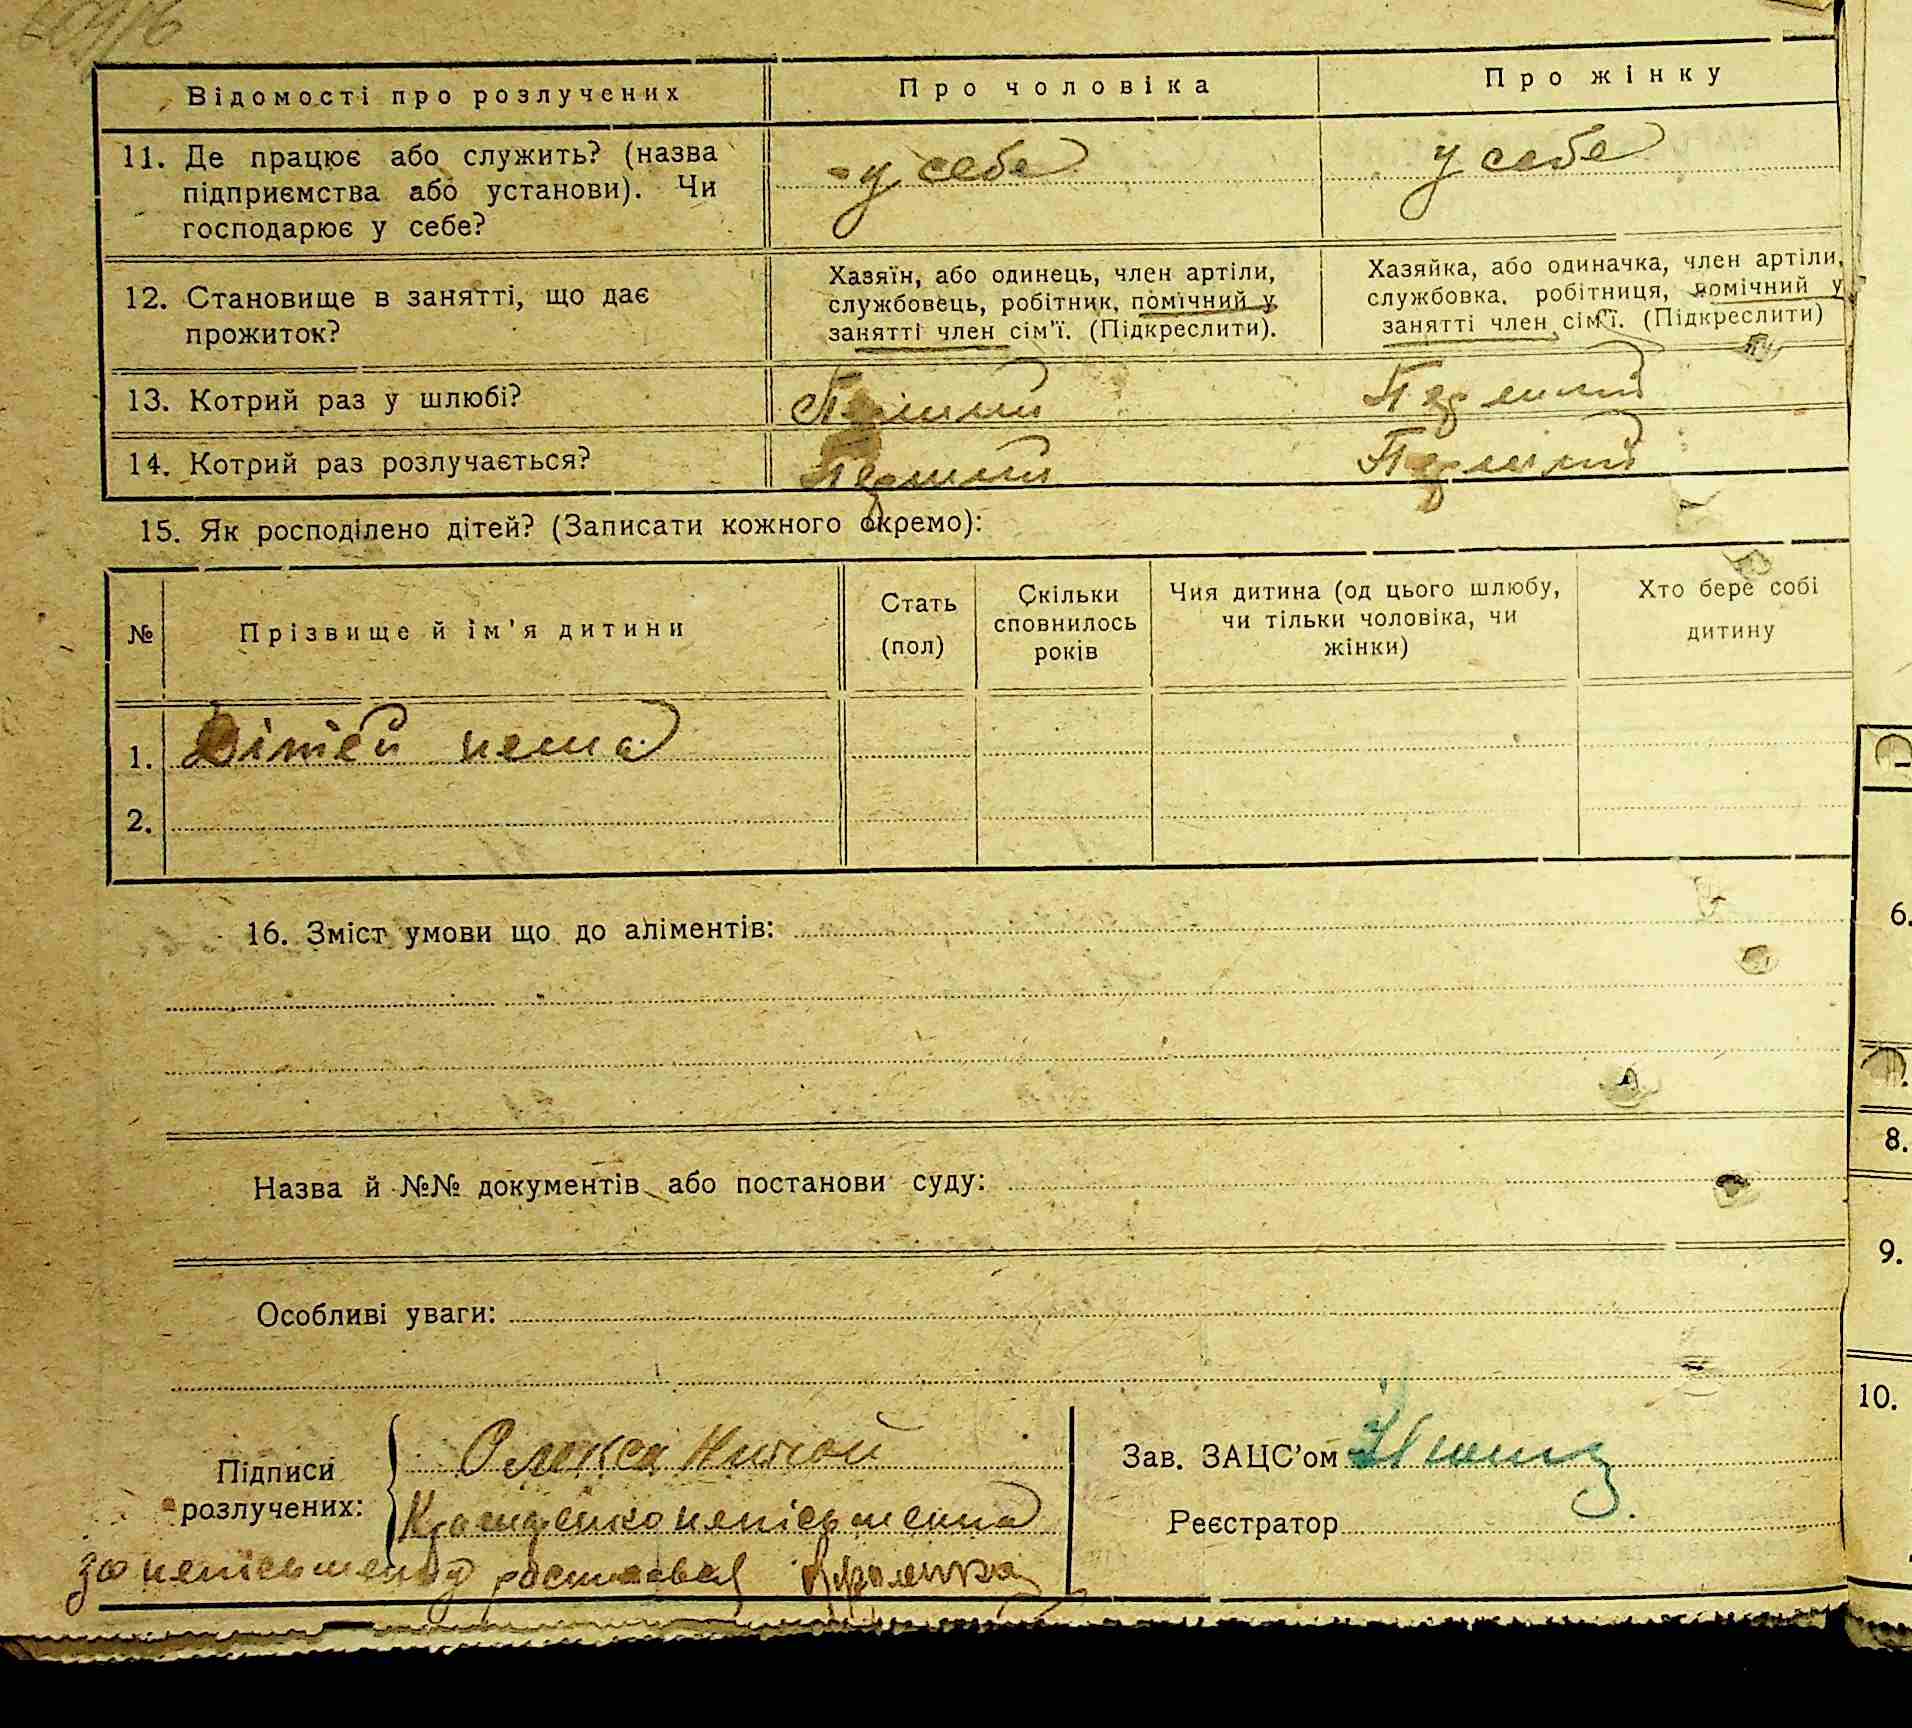 Відомості про розлучених
Про чоловіка
Про жінку
11. Де працює або служить? (назва
підприємства або установи). Чи
господарює у себе?
у себе
у себе
12. Становище в занятті, що дає
прожиток?
Хазяїн, або одинець, член артіли,
службовець, робітник, помічний у
занятті член сім'ї. (Підкреслити).
Хазяйка, або одиначка, член артіли,
службовка, робітниця, помічний у
занятті член сім'ї. (Підкреслити)
13. Котрий раз у шлюбі?
Перший
Перший
14. Котрий раз розлучається?
Перший
Перший
15. Як росподілено дітей? (Записати кожного окремо):
№
Прізвище й ім'я дитини
Стать
(пол)
Скільки
сповнилось
років
Чия дитина (од цього шлюбу,
чи тільки чоловіка, чи
жінки)
Хто бере собі
дитину
1. Дітей нема
2.
16. Зміст умови що до аліментів:
Назва й №№ документів або постанови суду:
Особливі уваги:
Підписи
розлучених:
Олекса
неписьменна
за неписьменну
Зав. ЗАЦС'ом
Реєстратор
6.
8.
9.
10.